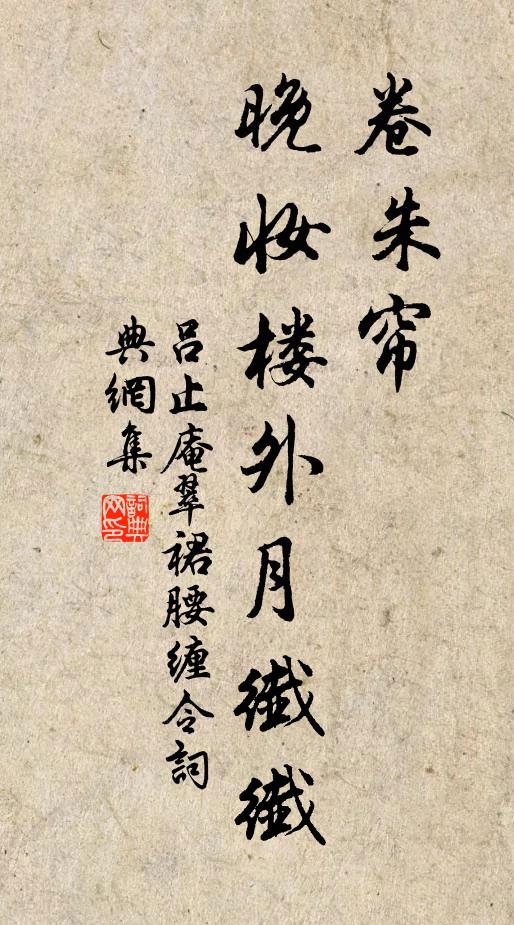 卷朱帘
晚妆楼外月纖纖
吕止庵翠裙腰缠令詞
典網集
詞典網印